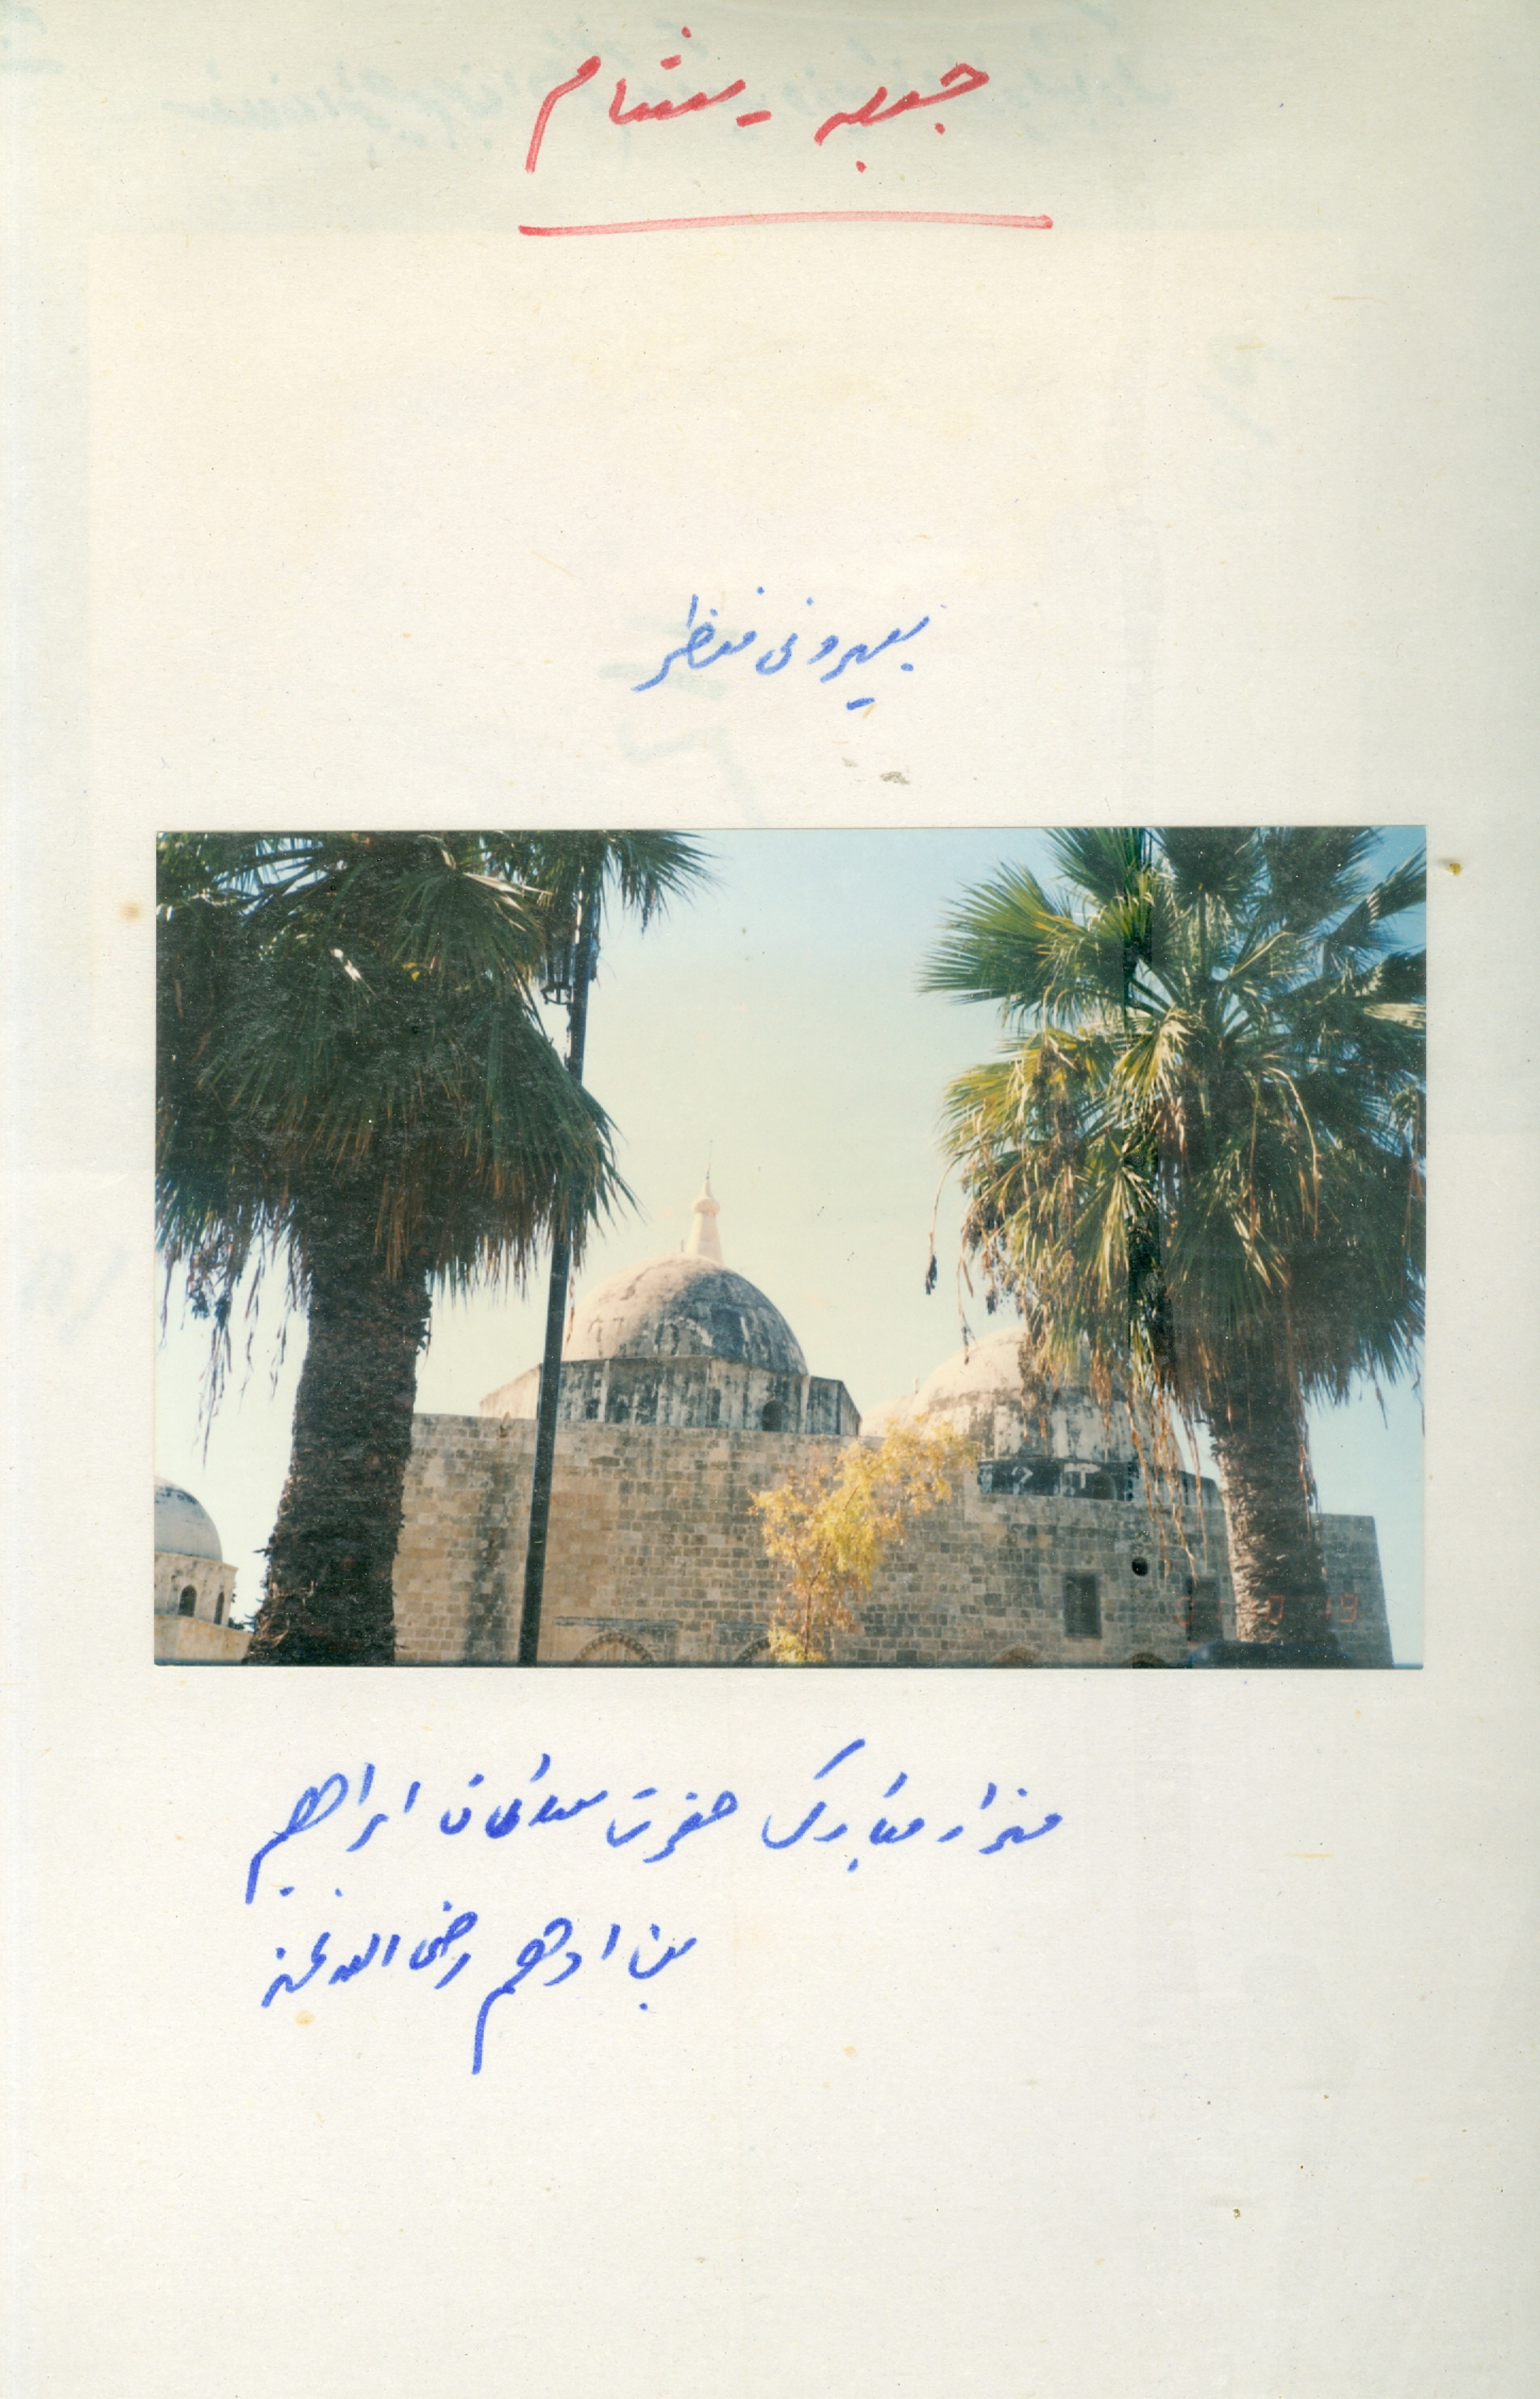 جبلہ - شام
بیرونی منظر
مزار مبارک حضرت سلطان ابراھیم
بن ادھم رضی اللہ عنہ